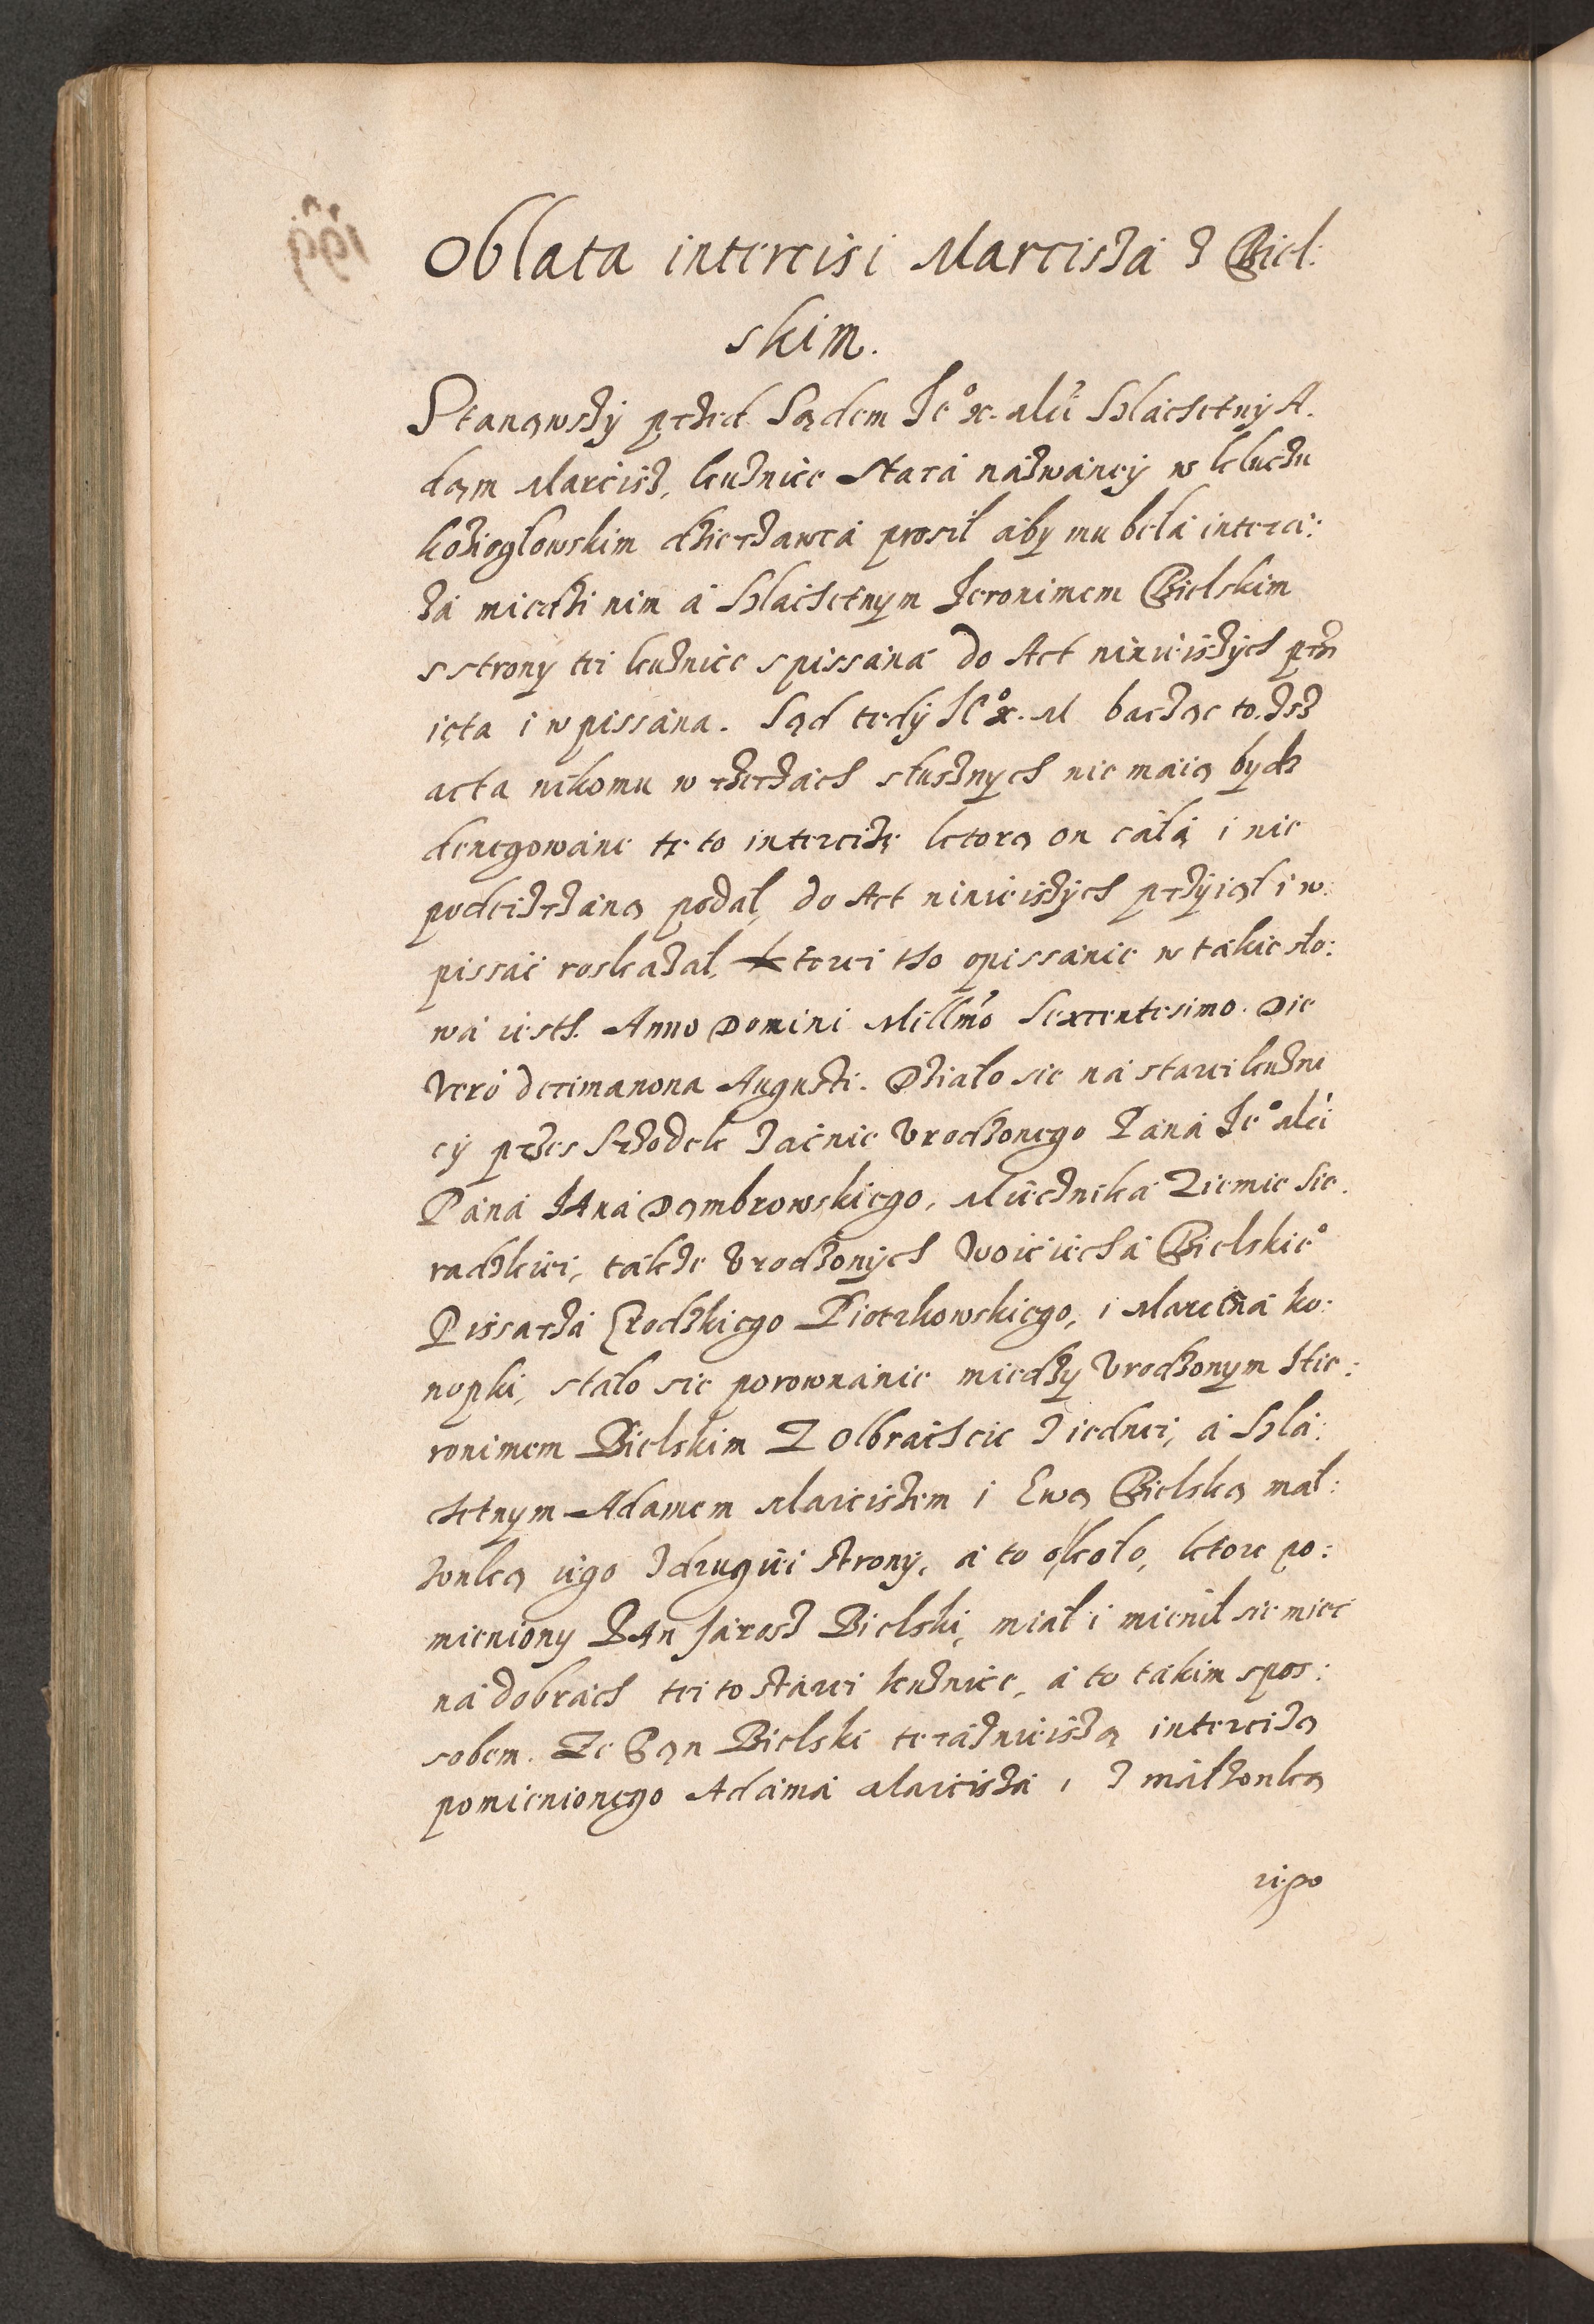 Oblata intercisi Marcisza z Biel:
skim.
Stanąwszy przed Sądem Je° X. Mći Szlachetny A.
dąm Marcisz, kuźnice Stara názwáney w kluczu
koźiogłowskim dźierżawcá prosił áby mu belá interci:
zá miedzi nim á Szlachetnym Jeronimem Bielskim
s strony tei kuźnice spissána do Act ninieiszych przy
ięta i w pissána. Sąd tedy Je° X. M bacząc to. Isz
acta nikomu w rzerzách słusznych nie maią bydz
denegowáne tę to intercizę ktorą on cáłą i nie
podeizrzáną podał, do Act ninieiszych przyiął i w:
pissáć roskazał, ktorei tho opissánie w tákie sło:
wá iesth. Anno Domini Millmo Sexcentesimo. Die
Vero decimanona Augusti. Działo sie ná starei kuźni
cy przes Srzodek Zacnie Vrodzonego Páná Je° Mći
Páná JAná Dąmbrowskiego, Miecznika Ziemie Sie.
radzkiei, tákże Vrodzonych Woiciechá Bielskie°
Pissarzá Grodzkiego Piotrkowskiego, i Marciná ko:
nopki, stało sie porownánie miedzy Vrodzonym Hie:
ronimem Bielskim Z Olbráchcic z iednei, á Szlá:
chetnym Adamem Marciszem i Ewą Bielską mał:
żonką iego z drugiei strony, á to około, ktore po:
mieniony PAn Jarosz Bielski, miał i mienił sie mieć
ná dobrách tei to starei kuźnice, á to tákim spos:
sobem. Ze Pąn Bielski teráznieiszą intercizą
pomienionego Adámá Marciszá, z małżonką
iego